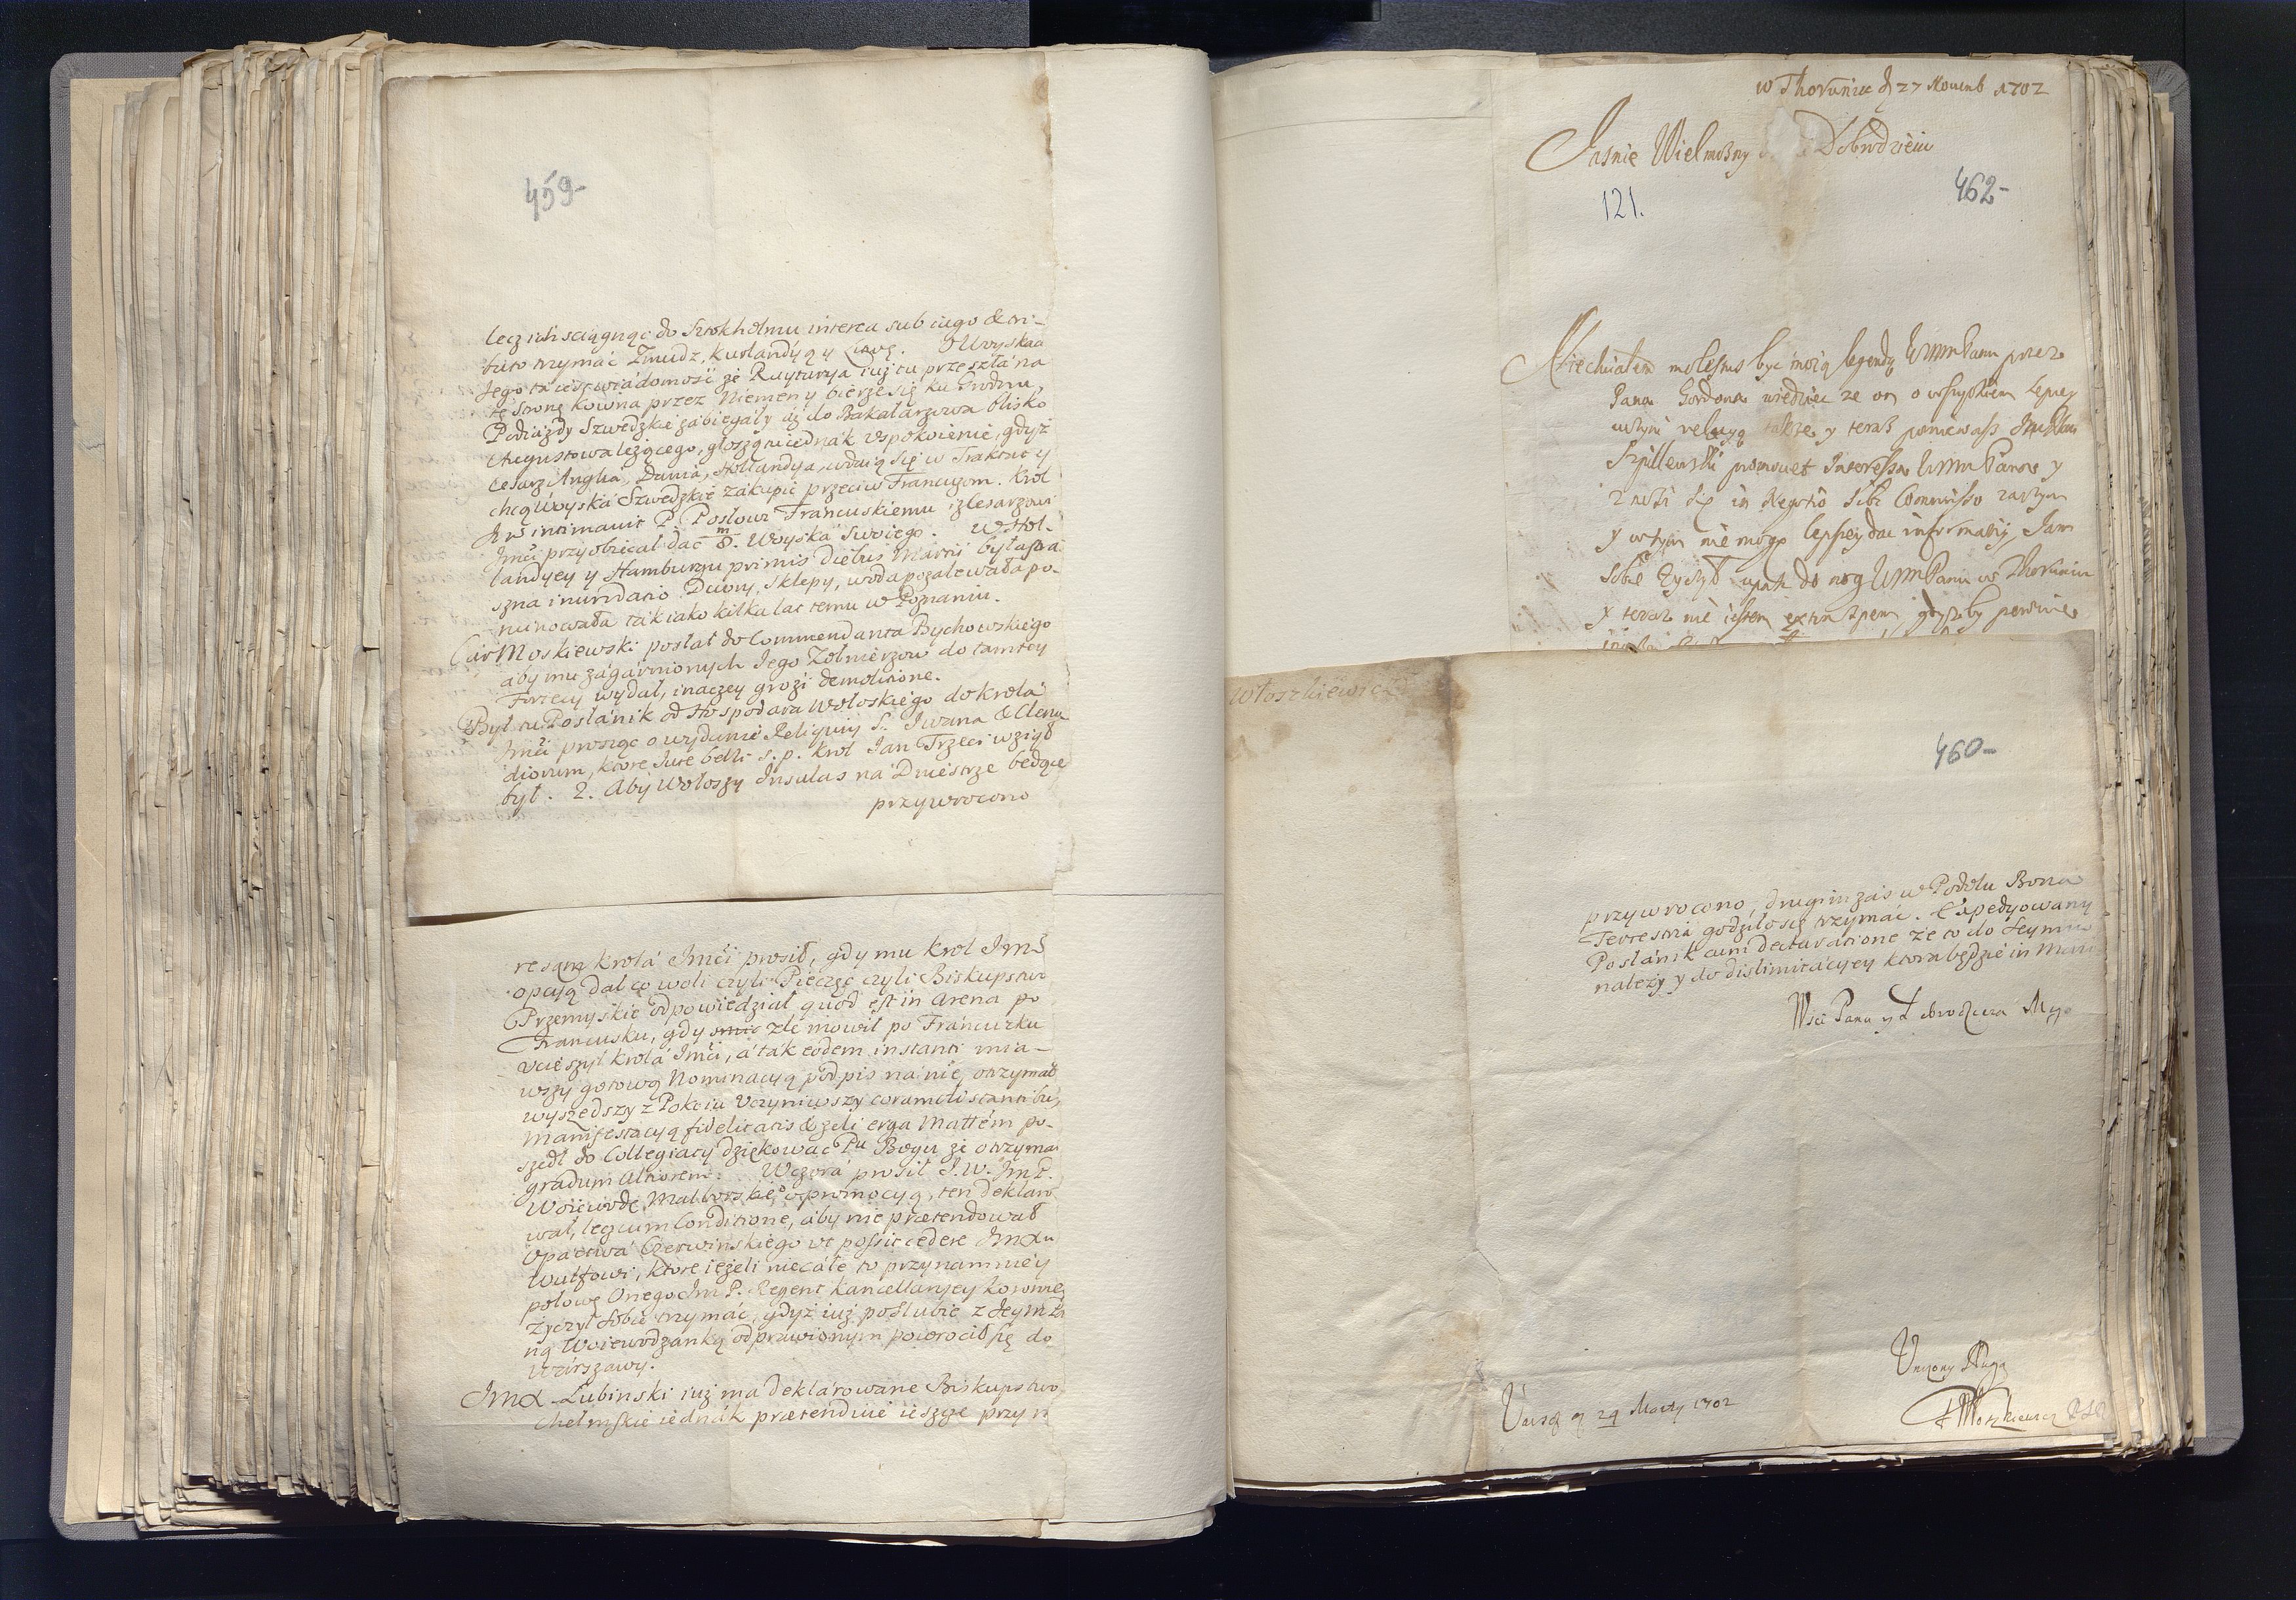 459-
lecz ich sciągnąc do Sztokholmu interea sub iugo & tri-
buto trzymác Zmudz, Kurlandyą y Litwę. O Woyskaa
Jego tá iest wiádomość że Rayturya iuż tu przeszłá ná
tę stronę Kowna przez Niemen y bierze się ku Grodnu,
Podiazdy Szwedzkie zábiegáły áż do Bakałarzewa blisko
Augustowa leżącego, głoszą iednák Uspokoienie, gdyż
Cesarz Anglia, Dania, Hollandya, wdaią się w Traktat y
chcą Woyská Szwedzkie zákupić przeciw Francuzom. Krol
Jmści przyobiecał dac 8. Woyská Swoiego. W Hol-
landyey y Hamburgu primis diebus Martii byłá
szna inundatio Dwory, Sklepy, woda pozalewałá po-
ruinowałá ták iako kilka lat temu w Poznaniu.
Car Moskiewski posłał do Commendanta Bychowskiego
aby mu zágárnionych Jego Zołnierzow do tamtey
Fortecy wydał, ináczey grozi demolitione.
Był tu Posłánik od Hospodara Wołoskiego do Krolá
Jmści prosząc o wydánie Reliquiy S. Iwana &
diorum, ktore Iure belli s. p. Krol Jan Trzeci wziął
był. 2. Aby Wołoszy Insulas ná Dniestrze będące
przywrocono
Krolá Jmści prosił, gdy mu Krol JMŚ
opcyą dał co woli czyli Pieczęć czyli Biskupstwo
Przemyskie odpowiedział quod est in arena po
Francusku, gdy zle mowił po Francuzku
ucieszył Krolá Jmści, á ták eodem instanti mia-
wszy gotową Nominacyą podpis ná nię otrzymał
wyszedszy z Pokoiu Uczyniwszy coram
manifestacyą fidelitatis & zeli erga Mattem po-
szedł do Collegiaty dziękowác Pu Bogu że otrzymał
gradum altiorem. Wczorá prosił J.W. JmP.
Woiewodę Malborskiego o promocyą, ten deklaro
wał, lecz cum Conditione, áby nie prætendował
Opactwá Czerwinskiego ut possit cedere Jmx
Wulffowi, ktore ieżeli niecáłe to przynamniey
połowę Onego Jm P. Regent Kancellaryey Koronney
życzył sobie trzymác, gdyż iuż po slubie z Jeym
ną Woiewodzanką odpráwionym powrocił się do
Wárszawy.
Jmx Łubinski iuż ma deklárowane Biskupstwo
Chełmskie iednák prætenduie ieszcze przy n
w Thoruniu d 27 Nouemb 1702
Jasnie Wielmożny Dobrodzieiu
121.
462-
Niechciałem molestus byc moią legendą WMMPanu przez
Pana Gordona wiedząc ze on o wszystkiem lepiey
uczyni relacyą także y teraz poniewasz
Szpillewski promouet Interessa WMMPana y
znosi się in Negotio sibi Commisso zaczym
y w tym nie mogę lepszey dac informatiy Jam
sobie życzył upasc do nog WMMPanu w Thoruniu
y teraz nie iestem extra spem, gdyszby pewnie
Włoszkiewicz
460-
przywrocono, drugim zaś w Podolu Bona
Terrestria godziło się trzymác. Expedyowany
Posłánik cum declaratione że to do Seymu
należy y do dislimitacyey ktora będzie in Maio
Wsci Pana y Dobrodzieia Mego
Unizony Sługa
Warsz d 24 Marty 1702